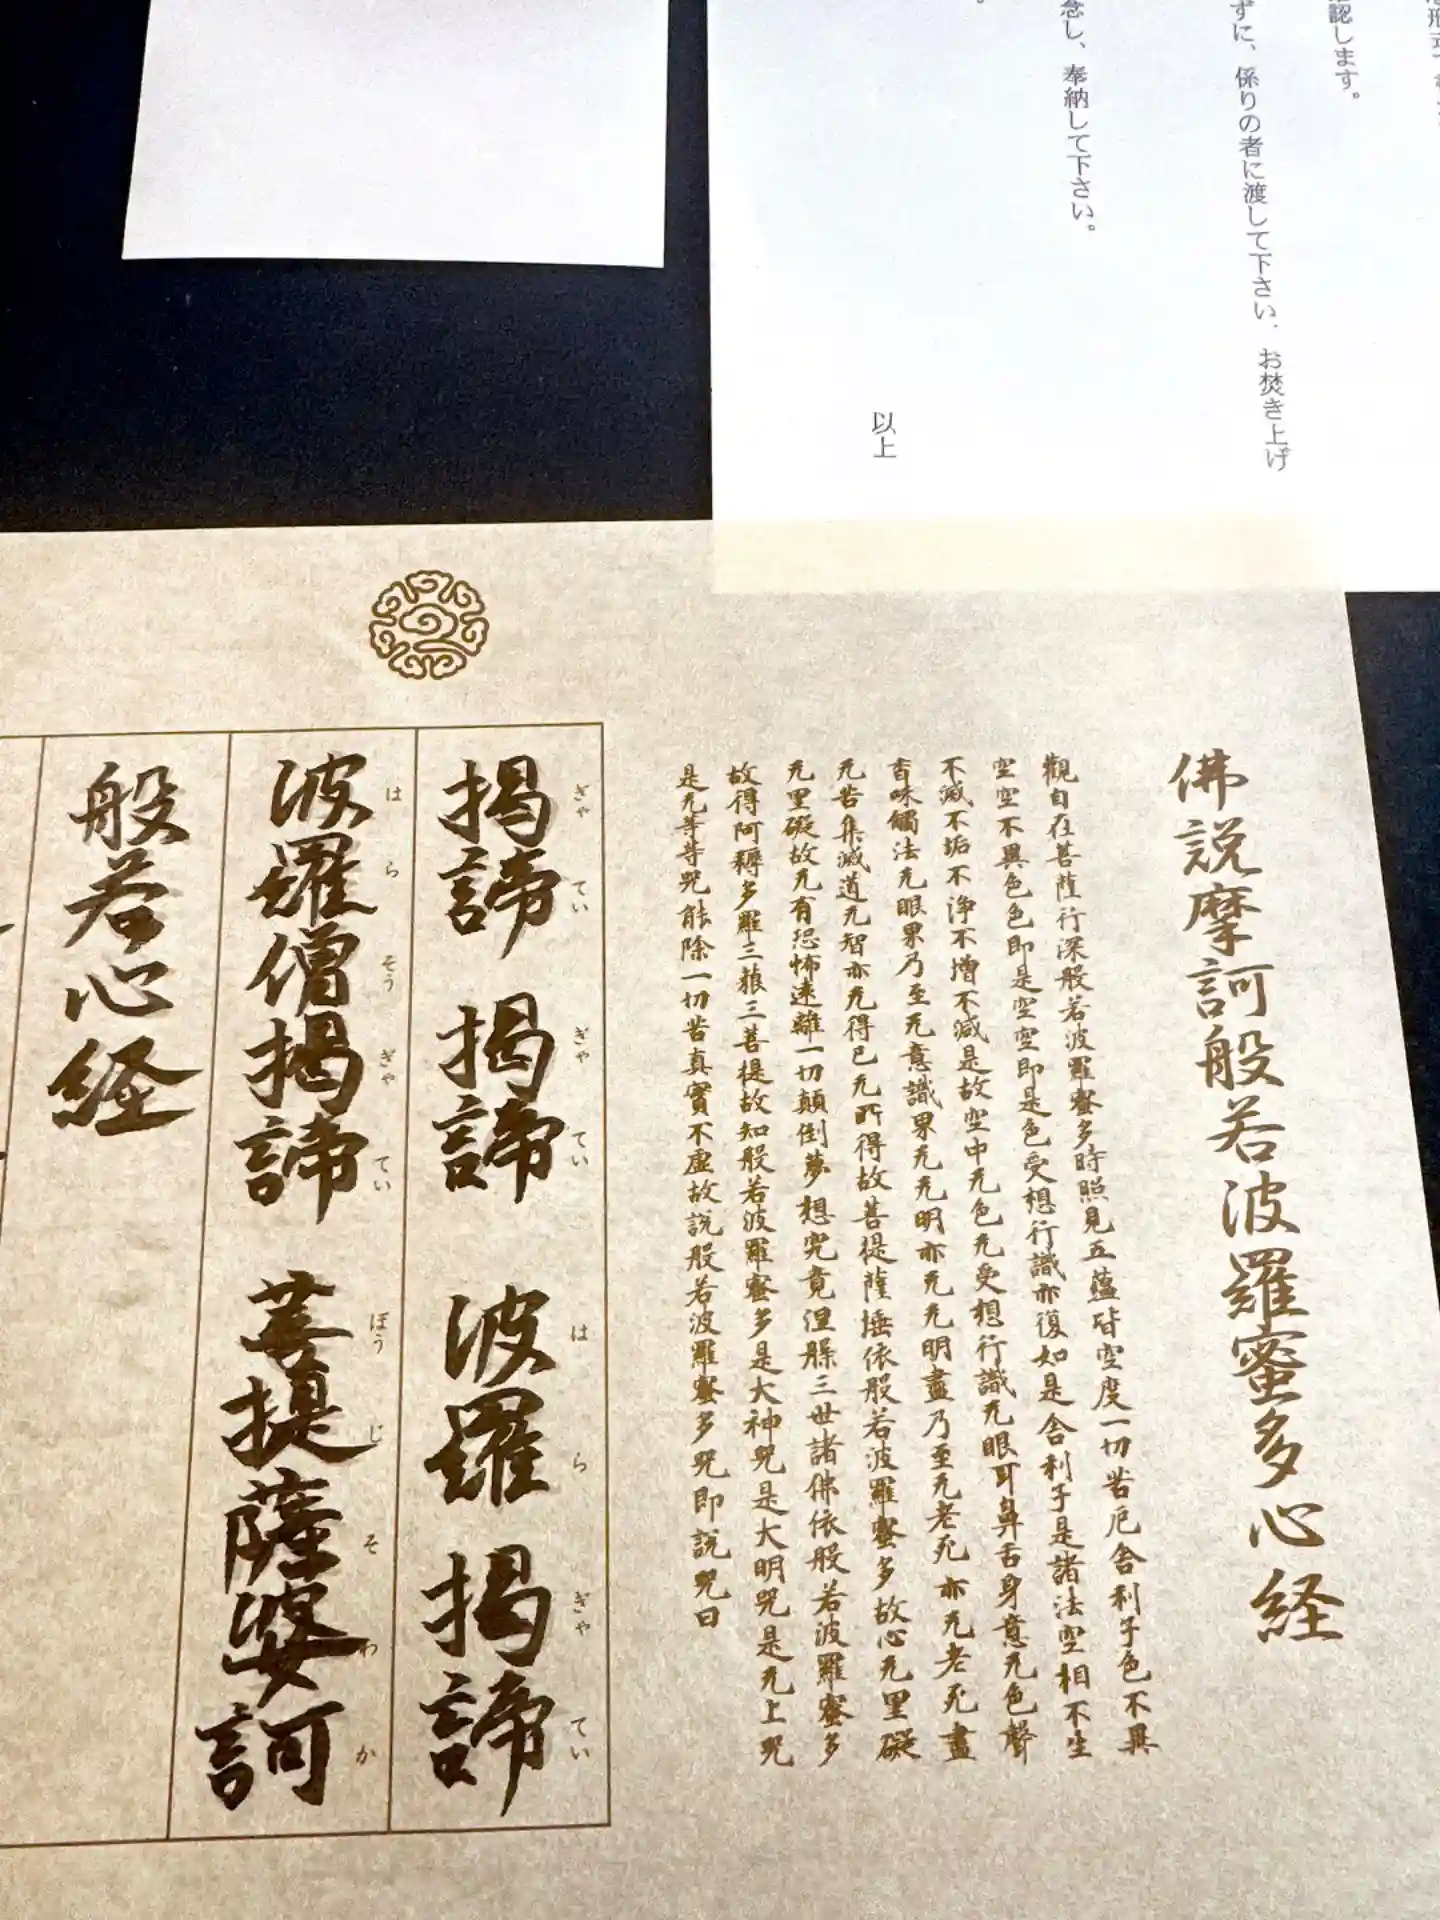 認します。
ずに、係りの者に渡して下さい。お焚き上げ
念し、奉納して下さい。
以上
佛説摩訶般若波羅蜜多心経
觀自在菩薩行深般若波羅蜜多時照見五蘊皆空度一切苦厄舎利子色不異
空空不異色色即是空空即是色受想行識亦復如是舎利子是諸法空相不生
不滅不垢不浄不増不減是故空中无色无受想行識无眼耳鼻舌身意无色聲
香味觸法无眼界乃至无意識界无无明亦无无明盡乃至无老死亦无老死盡
无苦集滅道无智亦无得已无所得故菩提薩埵依般若波羅蜜多故心无罣礙
无罣礙故无有恐怖遠離一切顛倒夢想究竟涅槃三世諸佛依般若波羅蜜多
故得阿耨多羅三藐三菩提故知般若波羅蜜多是大神咒是大明咒是无上咒
是无等等咒能除一切苦真實不虚故説般若波羅蜜多咒即説咒曰
揭諦 揭諦 波羅 揭諦
ぎゃ てい ぎゃ てい は ら ぎゃ てい
波羅僧揭諦 菩提薩婆訶
は ら そう ぎゃ てい ぼう じ そ わ か
般若心経